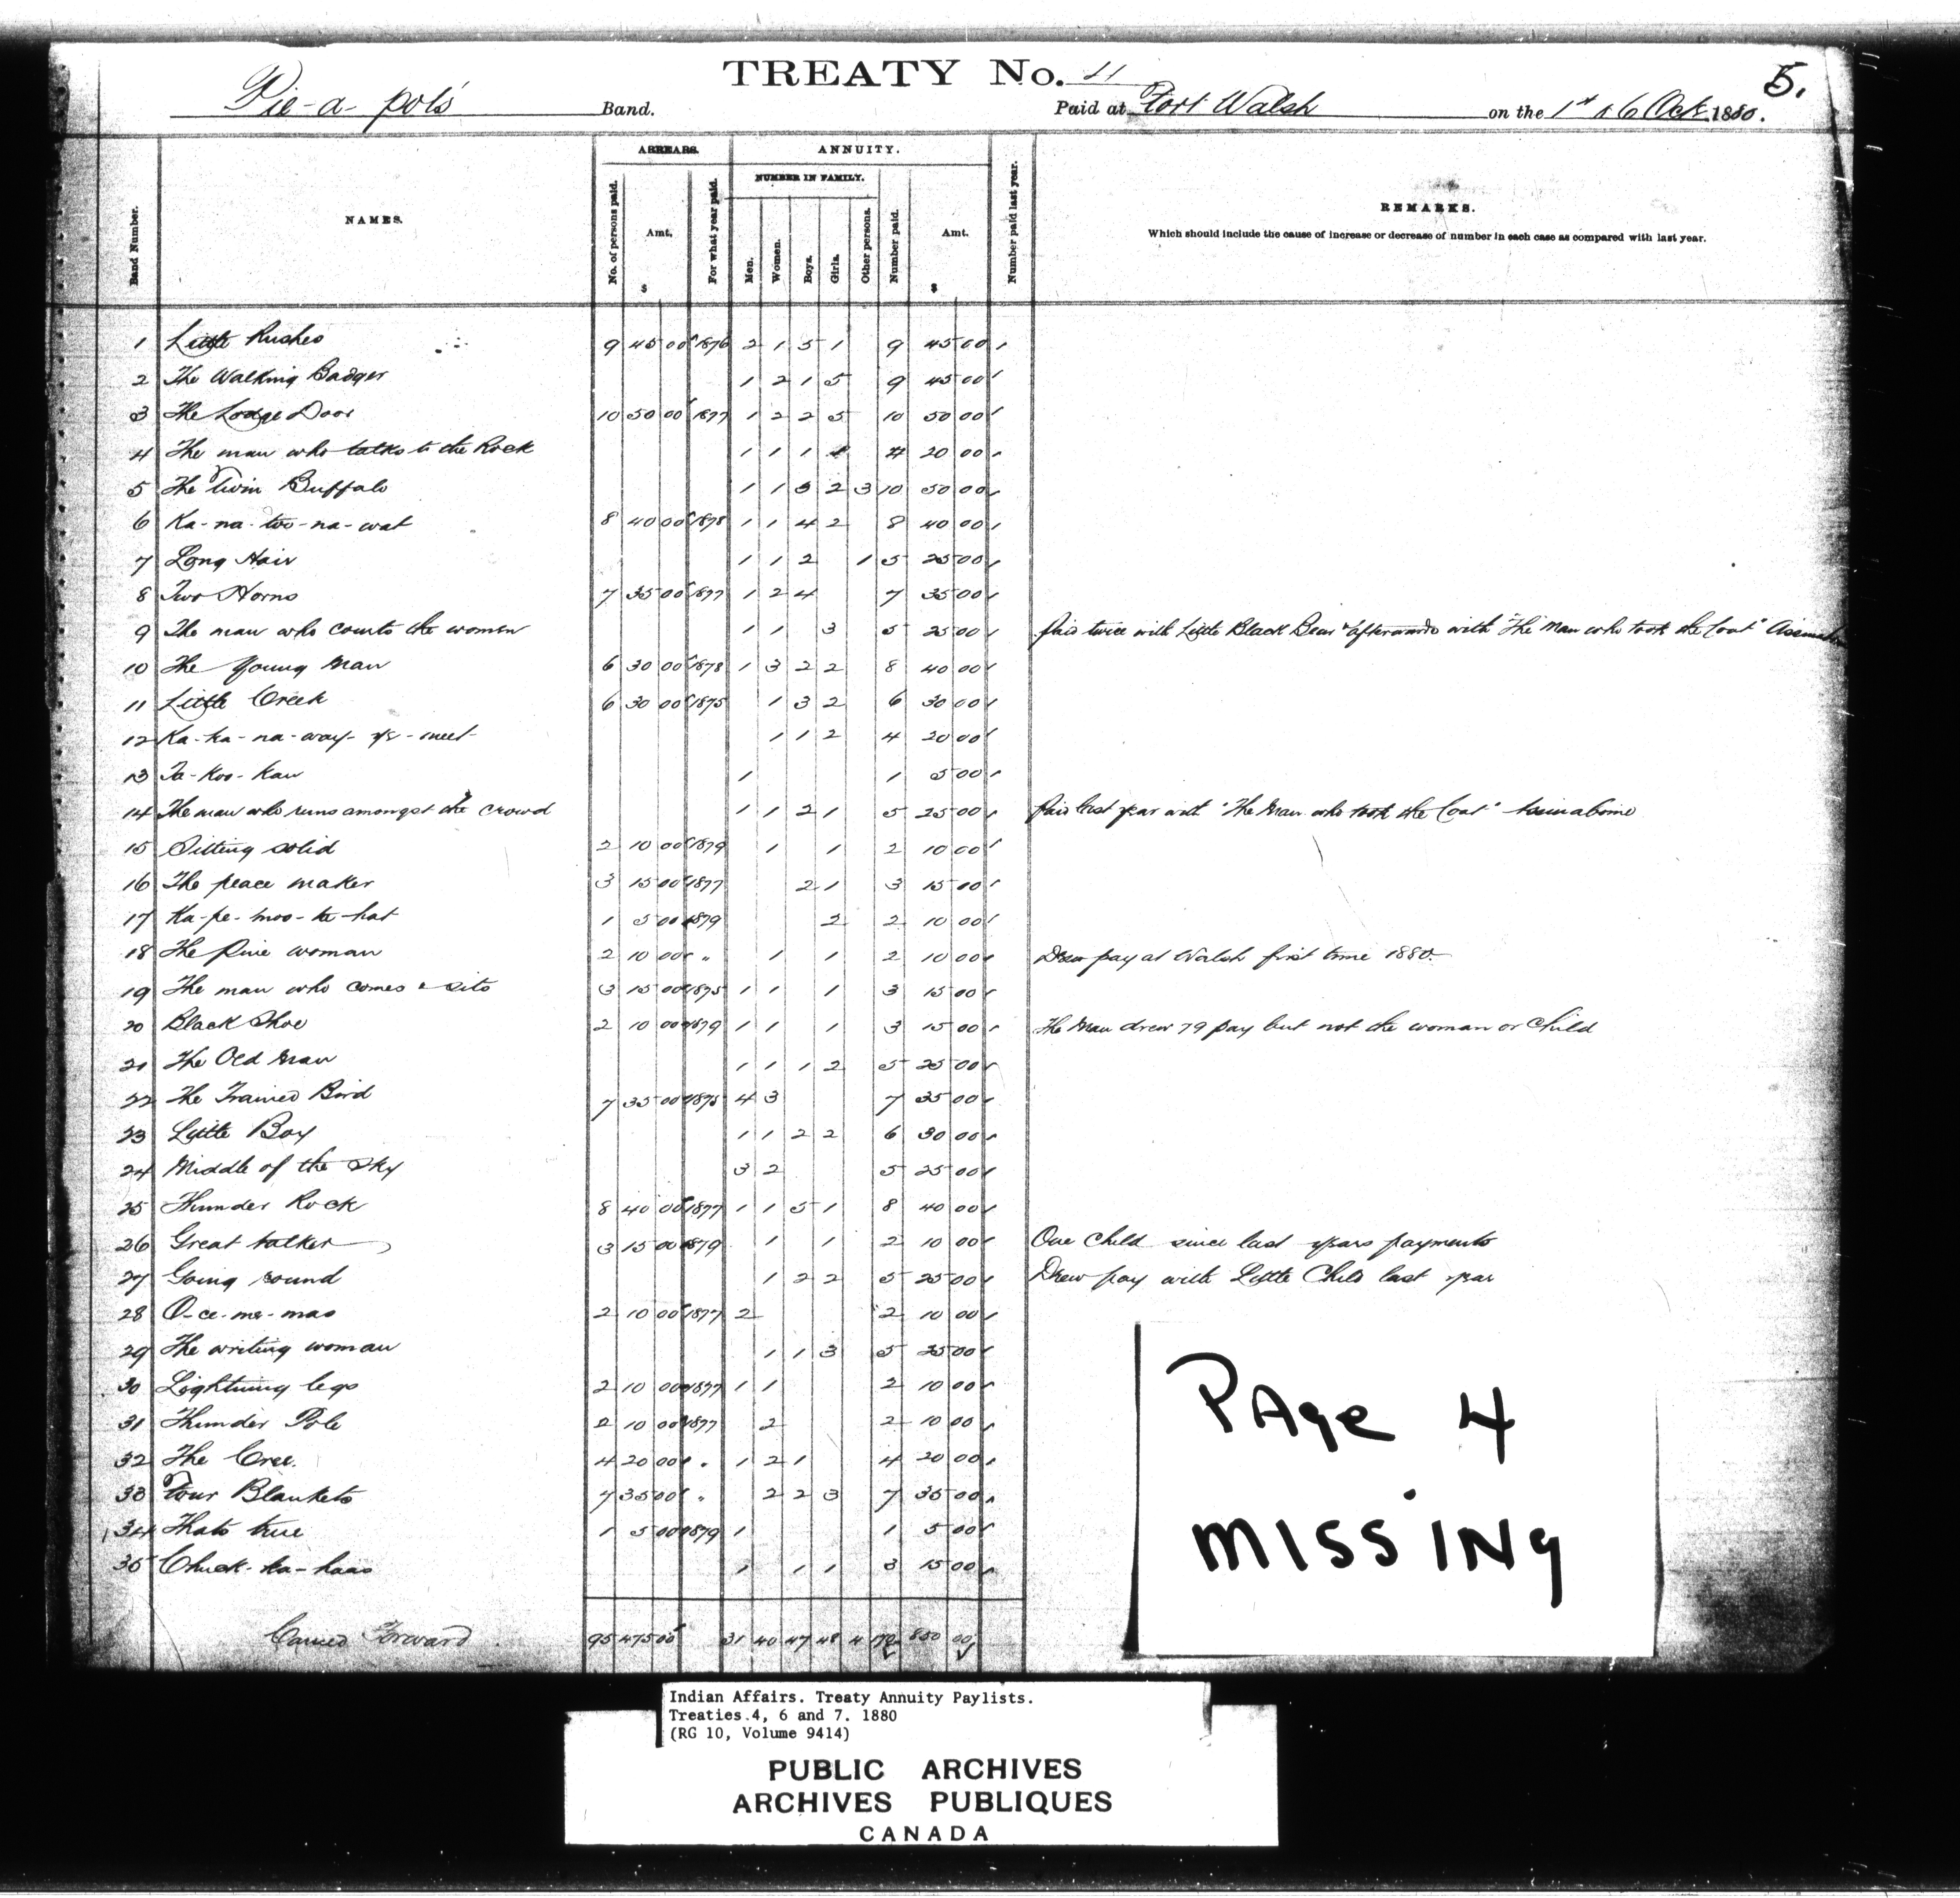 TREATY No. 11
5.
Pie-a-pots Band. Paid at Fort Walsh on the 1st & 6 Oct 1880.
ARREARS. ANNUITY.
NUMBER IN FAMILY.
Band Number. NAMES. No. of persons paid. Amt. $ For what year paid. Men. Women. Boys. Girls. Other persons. Number paid. Amt. $ Number paid last year. REMARKS.
Which should include the cause of increase or decrease of number in each case as compared with last year.
1 Little Rushes 9 45 00 1876 2 1 5 1 9 45 00
2 The Walking Badger 1 2 1 5 9 45 00
3 The Lodge Door 10 50 00 1877 1 2 2 5 10 50 00
4 The man who talks to the Rock 1 1 1 1 4 20 00
5 The Twin Buffalo 1 1 3 2 3 10 50 00
6 Ka-na-too-na-wat 8 40 00 1878 1 1 4 2 8 40 00
7 Long Hair 1 1 2 1 5 25 00
8 Two Horns 7 35 00 1877 1 2 4 7 35 00
9 The man who courts the women 1 1 3 5 25 00 Paid twice with Little Black Bear & afterwards with "The Man who took the Coat"
10 The Young Man 6 30 00 1878 1 3 2 2 8 40 00
11 Little Creek 6 30 00 1875 1 3 2 6 30 00
12 Ka-ka-na-way- 1 1 2 4 20 00
13 Ta-Koo-Kaw 1 1 5 00
14 The man who runs amongst the crowd 1 1 2 1 5 25 00 Paid last year with "The Man who took the Coat" Assinaboine
15 Sitting solid 2 10 00 1879 1 1 2 10 00
16 The peace maker 3 15 00 1877 2 1 3 15 00
17 Ka-pe-moo-te-hat 1 5 00 1879 2 2 10 00
18 The Pine woman 2 10 00 " 1 1 2 10 00 Drew pay at Walsh first time 1880.
19 The man who comes & sits 3 15 00 1875 1 1 1 3 15 00
20 Black Shoe 2 10 00 1879 1 1 1 3 15 00 The Man drew 79 pay but not the woman or Child
21 The Old Man 1 1 1 2 5 25 00
22 The Trained Bird 7 35 00 1875 4 3 7 35 00
23 Little Boy 1 1 2 2 6 30 00
24 Middle of the Sky 3 2 5 25 00
25 Thunder Rock 8 40 00 1877 1 1 5 1 8 40 00
26 Great talker 3 15 00 1879 1 1 2 10 00 One Child since last years payments
27 Going round 1 2 2 5 25 00 Drew pay with Little Child last year
28 O-ce-me-mas 2 10 00 1877 2 2 10 00
29 The writing woman 1 1 3 5 25 00
30 Lightning legs 2 10 00 1877 1 1 2 10 00
31 Thunder Pole 2 10 00 1877 2 2 10 00
32 The Cree. 4 20 00 " 1 2 1 4 20 00
33 Four Blankets 7 35 00 " 2 2 3 7 35 00
34 Thats true 1 5 00 1879 1 1 5 00
35 Chuck-ka-haas 1 1 1 3 15 00
Carried Forward 95 475 00 31 40 47 48 4 170 850 00
PAge 4
missiNg
Indian Affairs. Treaty Annuity Paylists.
Treaties 4, 6 and 7. 1880
(RG 10, Volume 9414)
PUBLIC ARCHIVES
ARCHIVES PUBLIQUES
CANADA